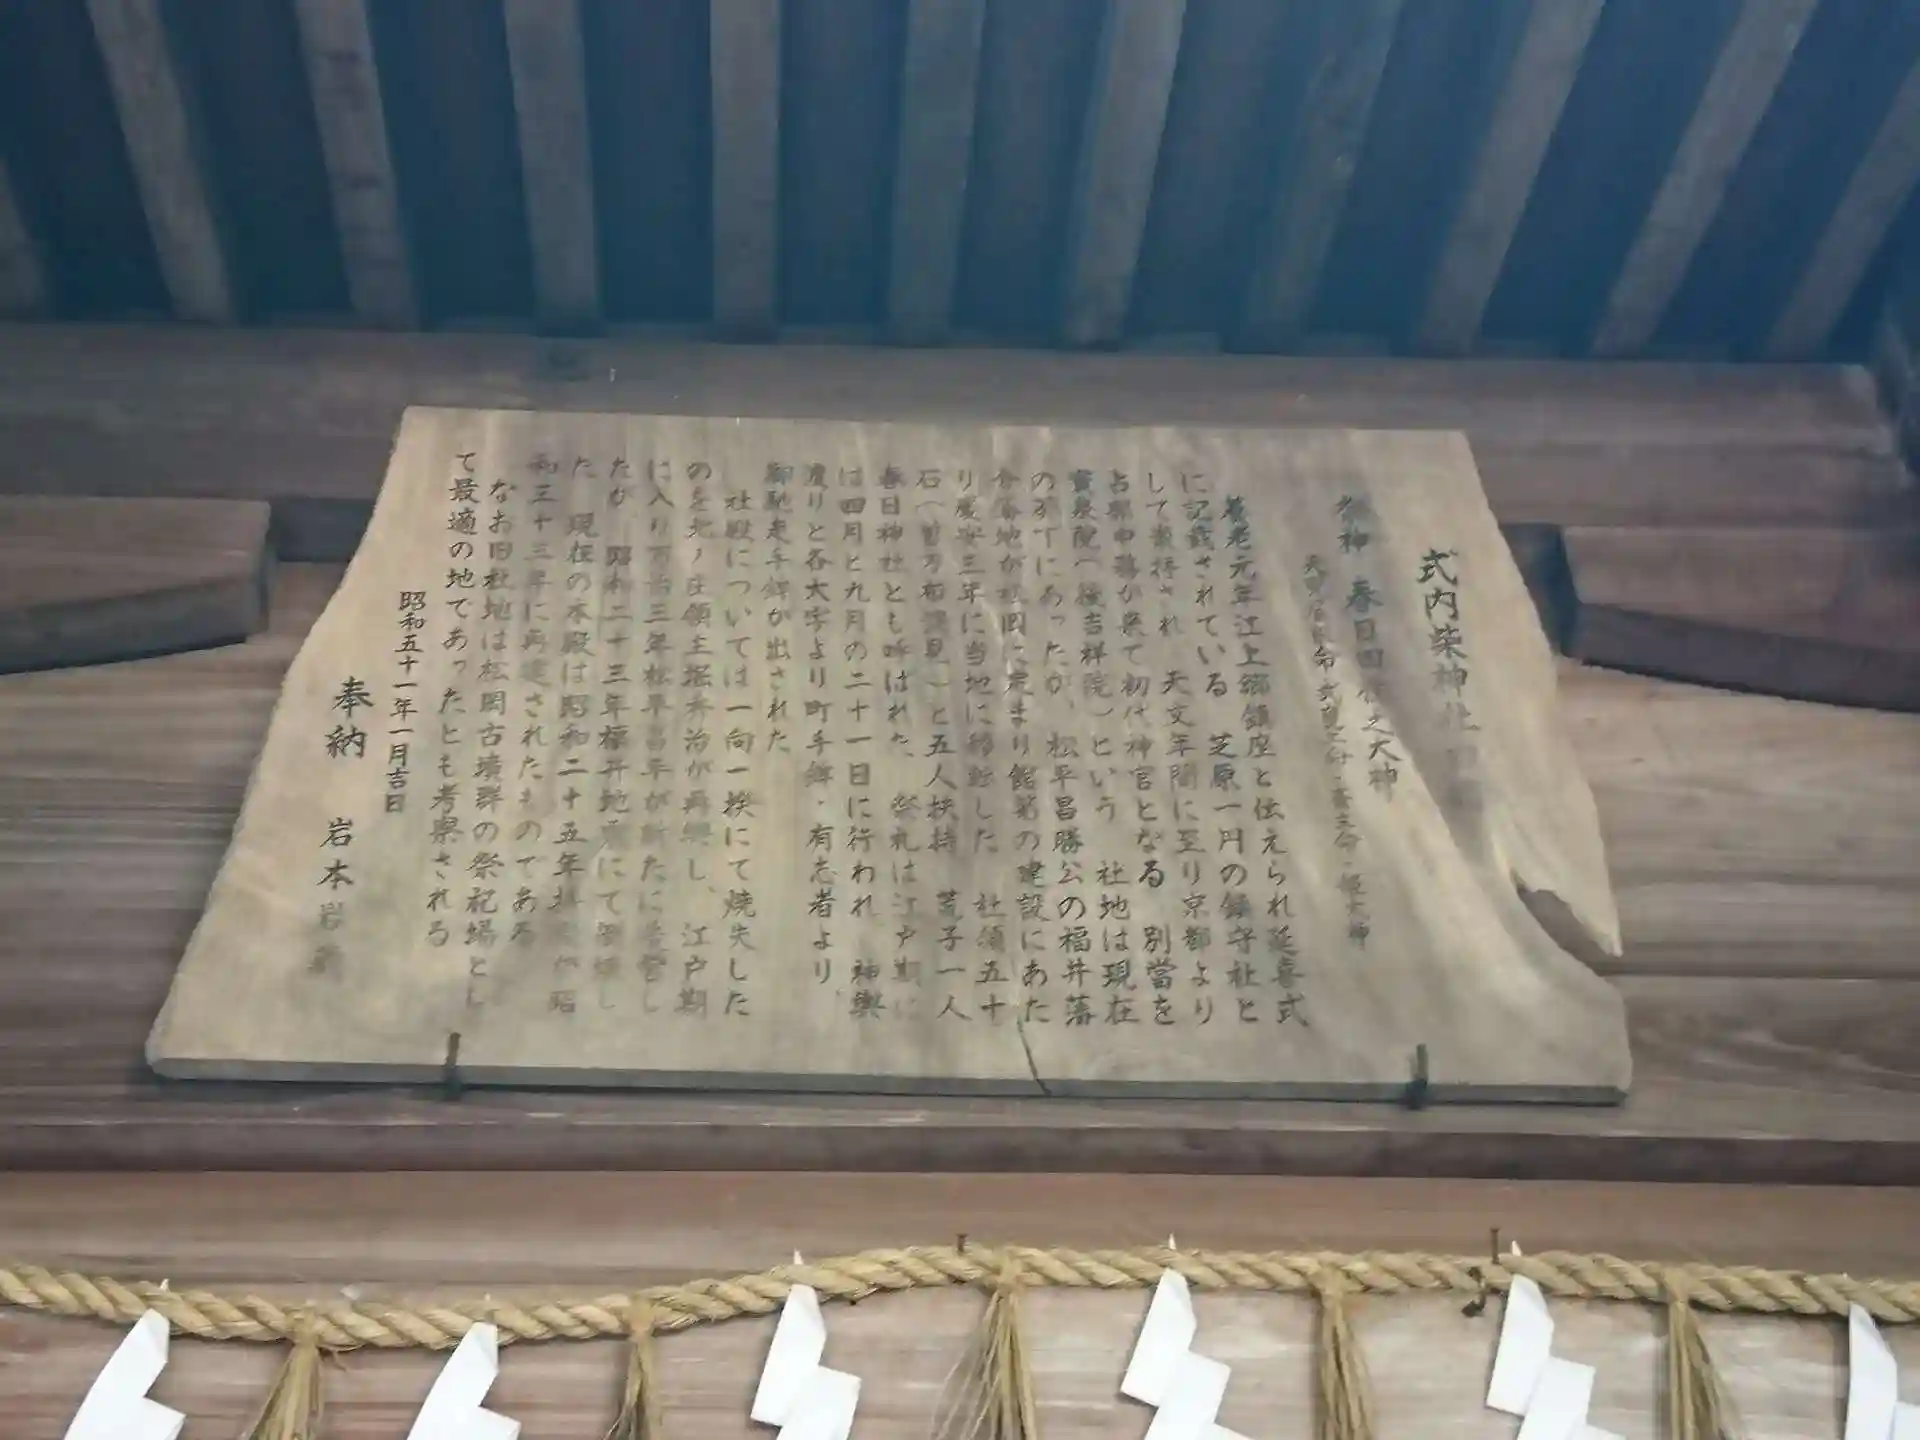 式内柴神社
祭神 春日四 之大神
養老元年江上郷鎮座と伝えられ延喜式
に記載されている 芝原一円の鎮守社と
して崇持され 天文年間に至り京都より
占部中務が来て初代神官となる 別當を
寶泉院(後吉祥院)という 社地は現在
の 下にあったが、松平昌勝公の福井藩
分封地が松岡に定まり館第の建設にあた
り慶安三年に当地に移転した 社領五十
石 と五人扶持 荒子一人
春日神社とも呼ばれた、祭礼は江戸期に
は四月と九月の二十一日に行われ 神輿
渡りと各大字より町手鉾・有志者より、
御馳走手鉾が出された
社殿については一向一揆にて焼失した
のを北ノ庄領主堀秀治が再興し、江戸期
に入り万治三年松平昌平が新たに造営し
たが、昭和二十三年福井地震にて倒壊し
た 現在の本殿は昭和二十五年 が昭
和三十三年に再建されたものである
なお旧社地は松岡古墳群の祭祀場とし
て最適の地であったとも考察される
昭和五十一年一月吉日
奉納 岩本岩